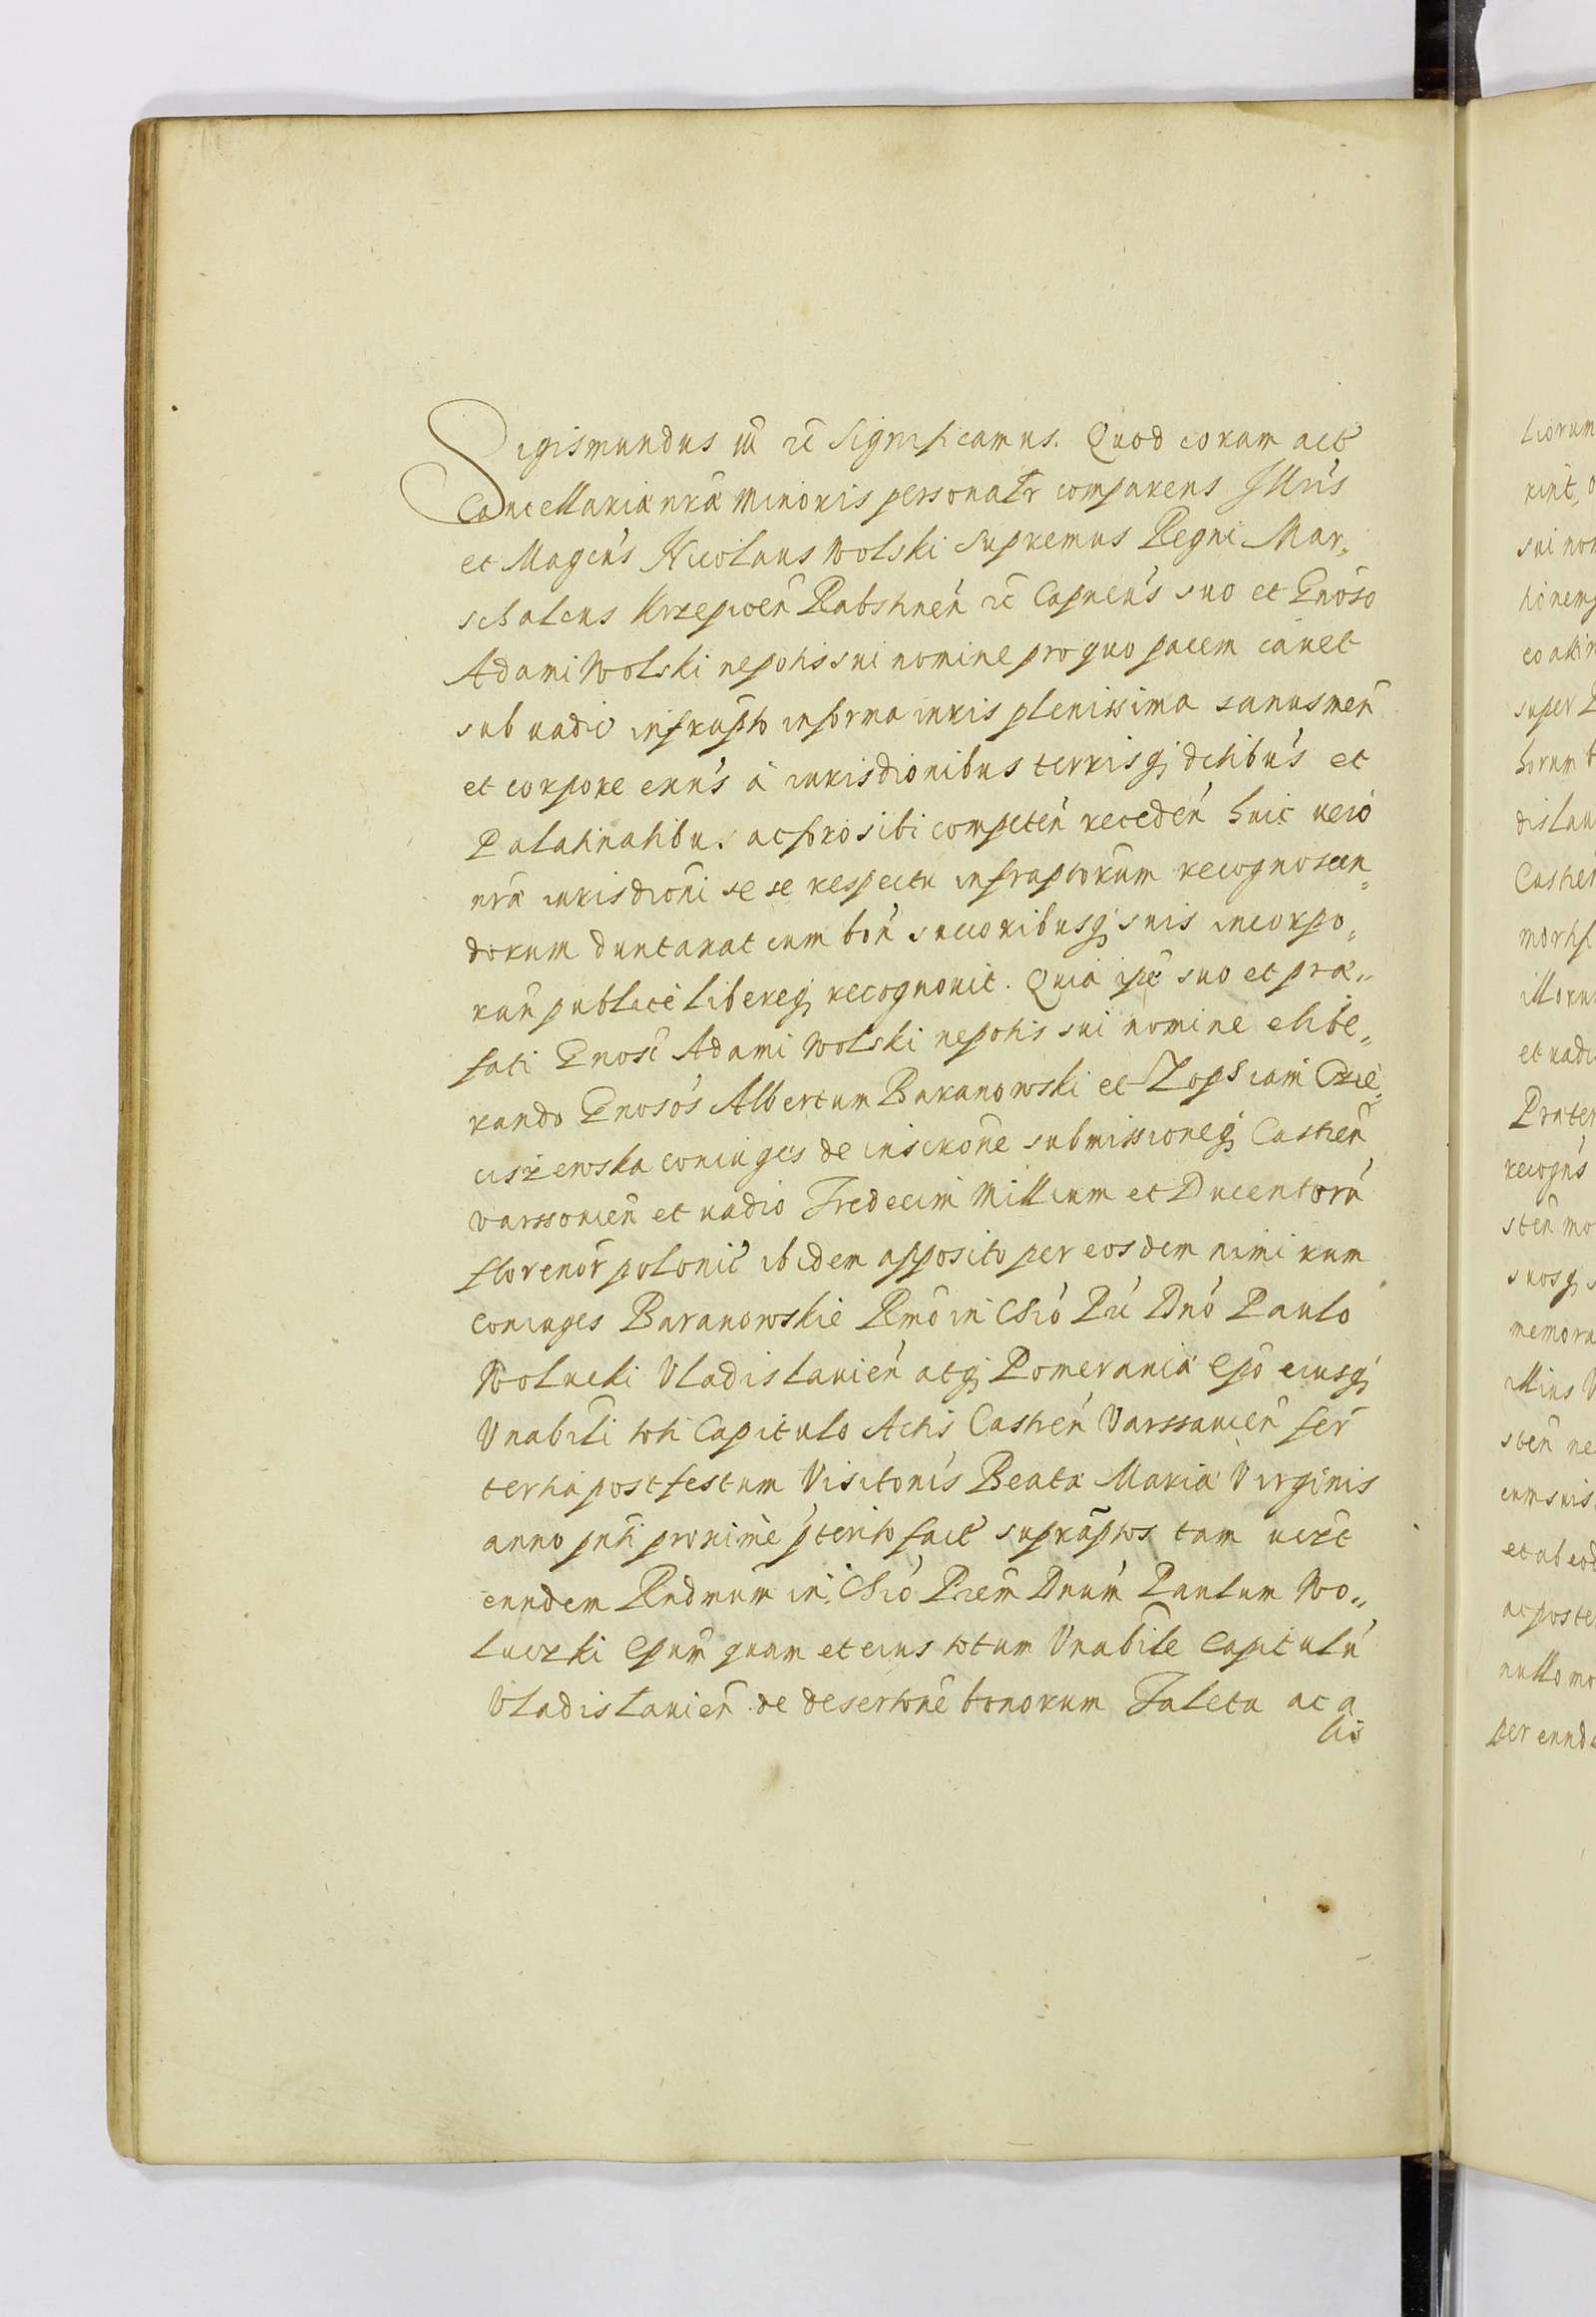 Sigismundus III etc̃ Significamus. Quod coram act̃
Cancellariæ nr̃æ Minoris personalr̃ comparens Illrís
et Magcús Nicolaus Wolski Supremus Regni Mar„
schalcus Krzepicen̄ Rabsztinén etc̃ Capneús suo et Gnõso
Adami Wolski nepotis sui nomine pro quo pacem cauet
sub uadio infrasp̃to in forma iuris plenissima sanus men̄
et corpore exns̃ à iurisdionibus terris q̧ dctibús et
Palatinatibus ac foro sibi competeń recedéń huic uero
nr̃æ iurisdiõni se se respectu infraptorũm recognoscen„
dorum duntaxat cum boń succoribusq̧ suis incorpo„
ran̄ publicè libereq̧ recognouit. Quia ipẽ suo et præ„
fati Gnosĩ Adami Wolski nepotis sui nomine elibe„
rando Gnosós Albertum Baranowski et Zophiam Cze„
ciszewska coniuges de inscrõne submissioneq̧ Castren̄
Varssouien̄ et uadio Tredecim Millium et Ducentorú
florenor̃ polonić ibidem apposito per eosdem nimirum
coniuges Baranowskie Rmõ in Chró Prí Dnó Paulo
Wolucki Vladislauién atq̧ Pomeraniæ Epõ eiusq̧
Vnabili toti Capitulo Actis Castreń Varssauien̄ fer̃
tertia post festum Visitonís Beatæ Mariæ Virginis
anno pñti proxime ṕterito fact̃ supraptos tam uczt̃
eundem Rndmum in Chró Prem̃ Dnum Paulum Wo„
luczki Epum̃ quam et eius totum Vnabile Capitulú
Vladislauien̄ de desertione bonorum Faleta ac a
lio
Liorum
rint,
sui nom
super
horum
dislau
Castreń
illorum
et uadi
recogńs
sten̄ mo
suosq̧ s
memora
illius V
sten̄ ne
cum suis
et ab eod
ac poste
nullo mo
per eunde